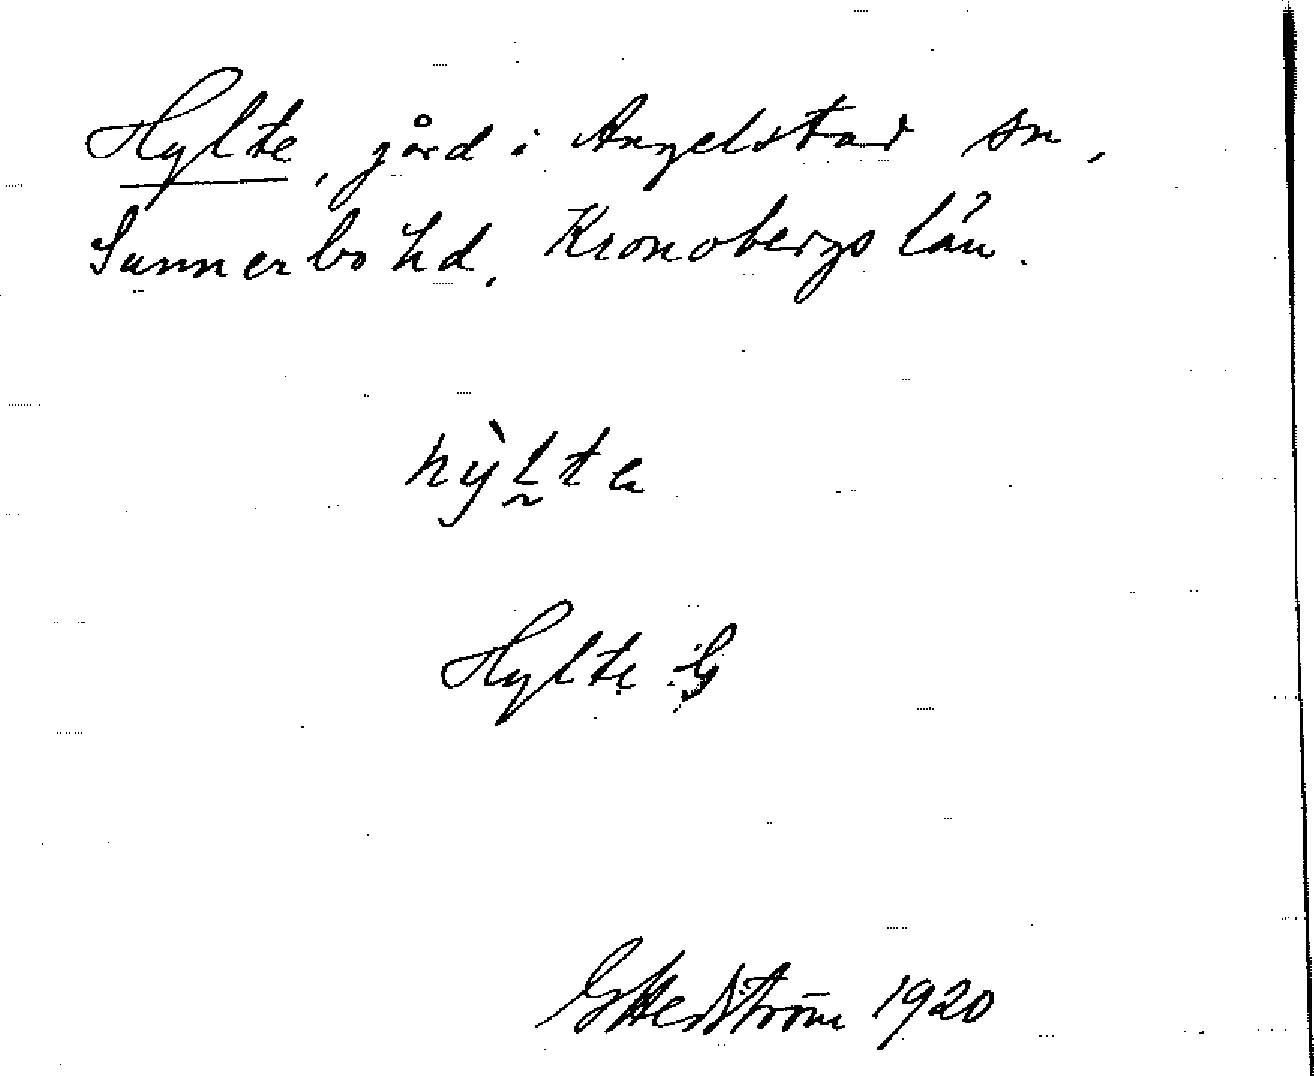 Hylte, gård i Angelstad sn,
Sunnerbo hd, Kronobergs län.
hỳlta
Hylte G
G Hedström 1920